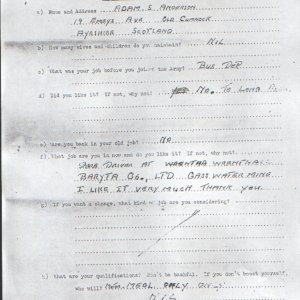 a) Name and Address ADAM. S. ANDERSON
19 AVE. OLD CUMNOCK
AYRSHIRE SCOTLAND
b) How many wives and children do you maintain? NIL
c) What was your job before you joined the Army? BUS
d) Did you like it? If not, why not? NO. TO LONG
e) Are you back in your old job? NO
f) What job are you in now and do you like it? If not, why not?
DRIVER AT
BARYTA Co., LTD GASSWATER MINE
I LIKE IT VERY MUCH THANK YOU.
g) If you want a change, what kind of job are you considering?
h) What are your qualifications? Don't be bashful. If you don't boost yourself,
who will?
NIL